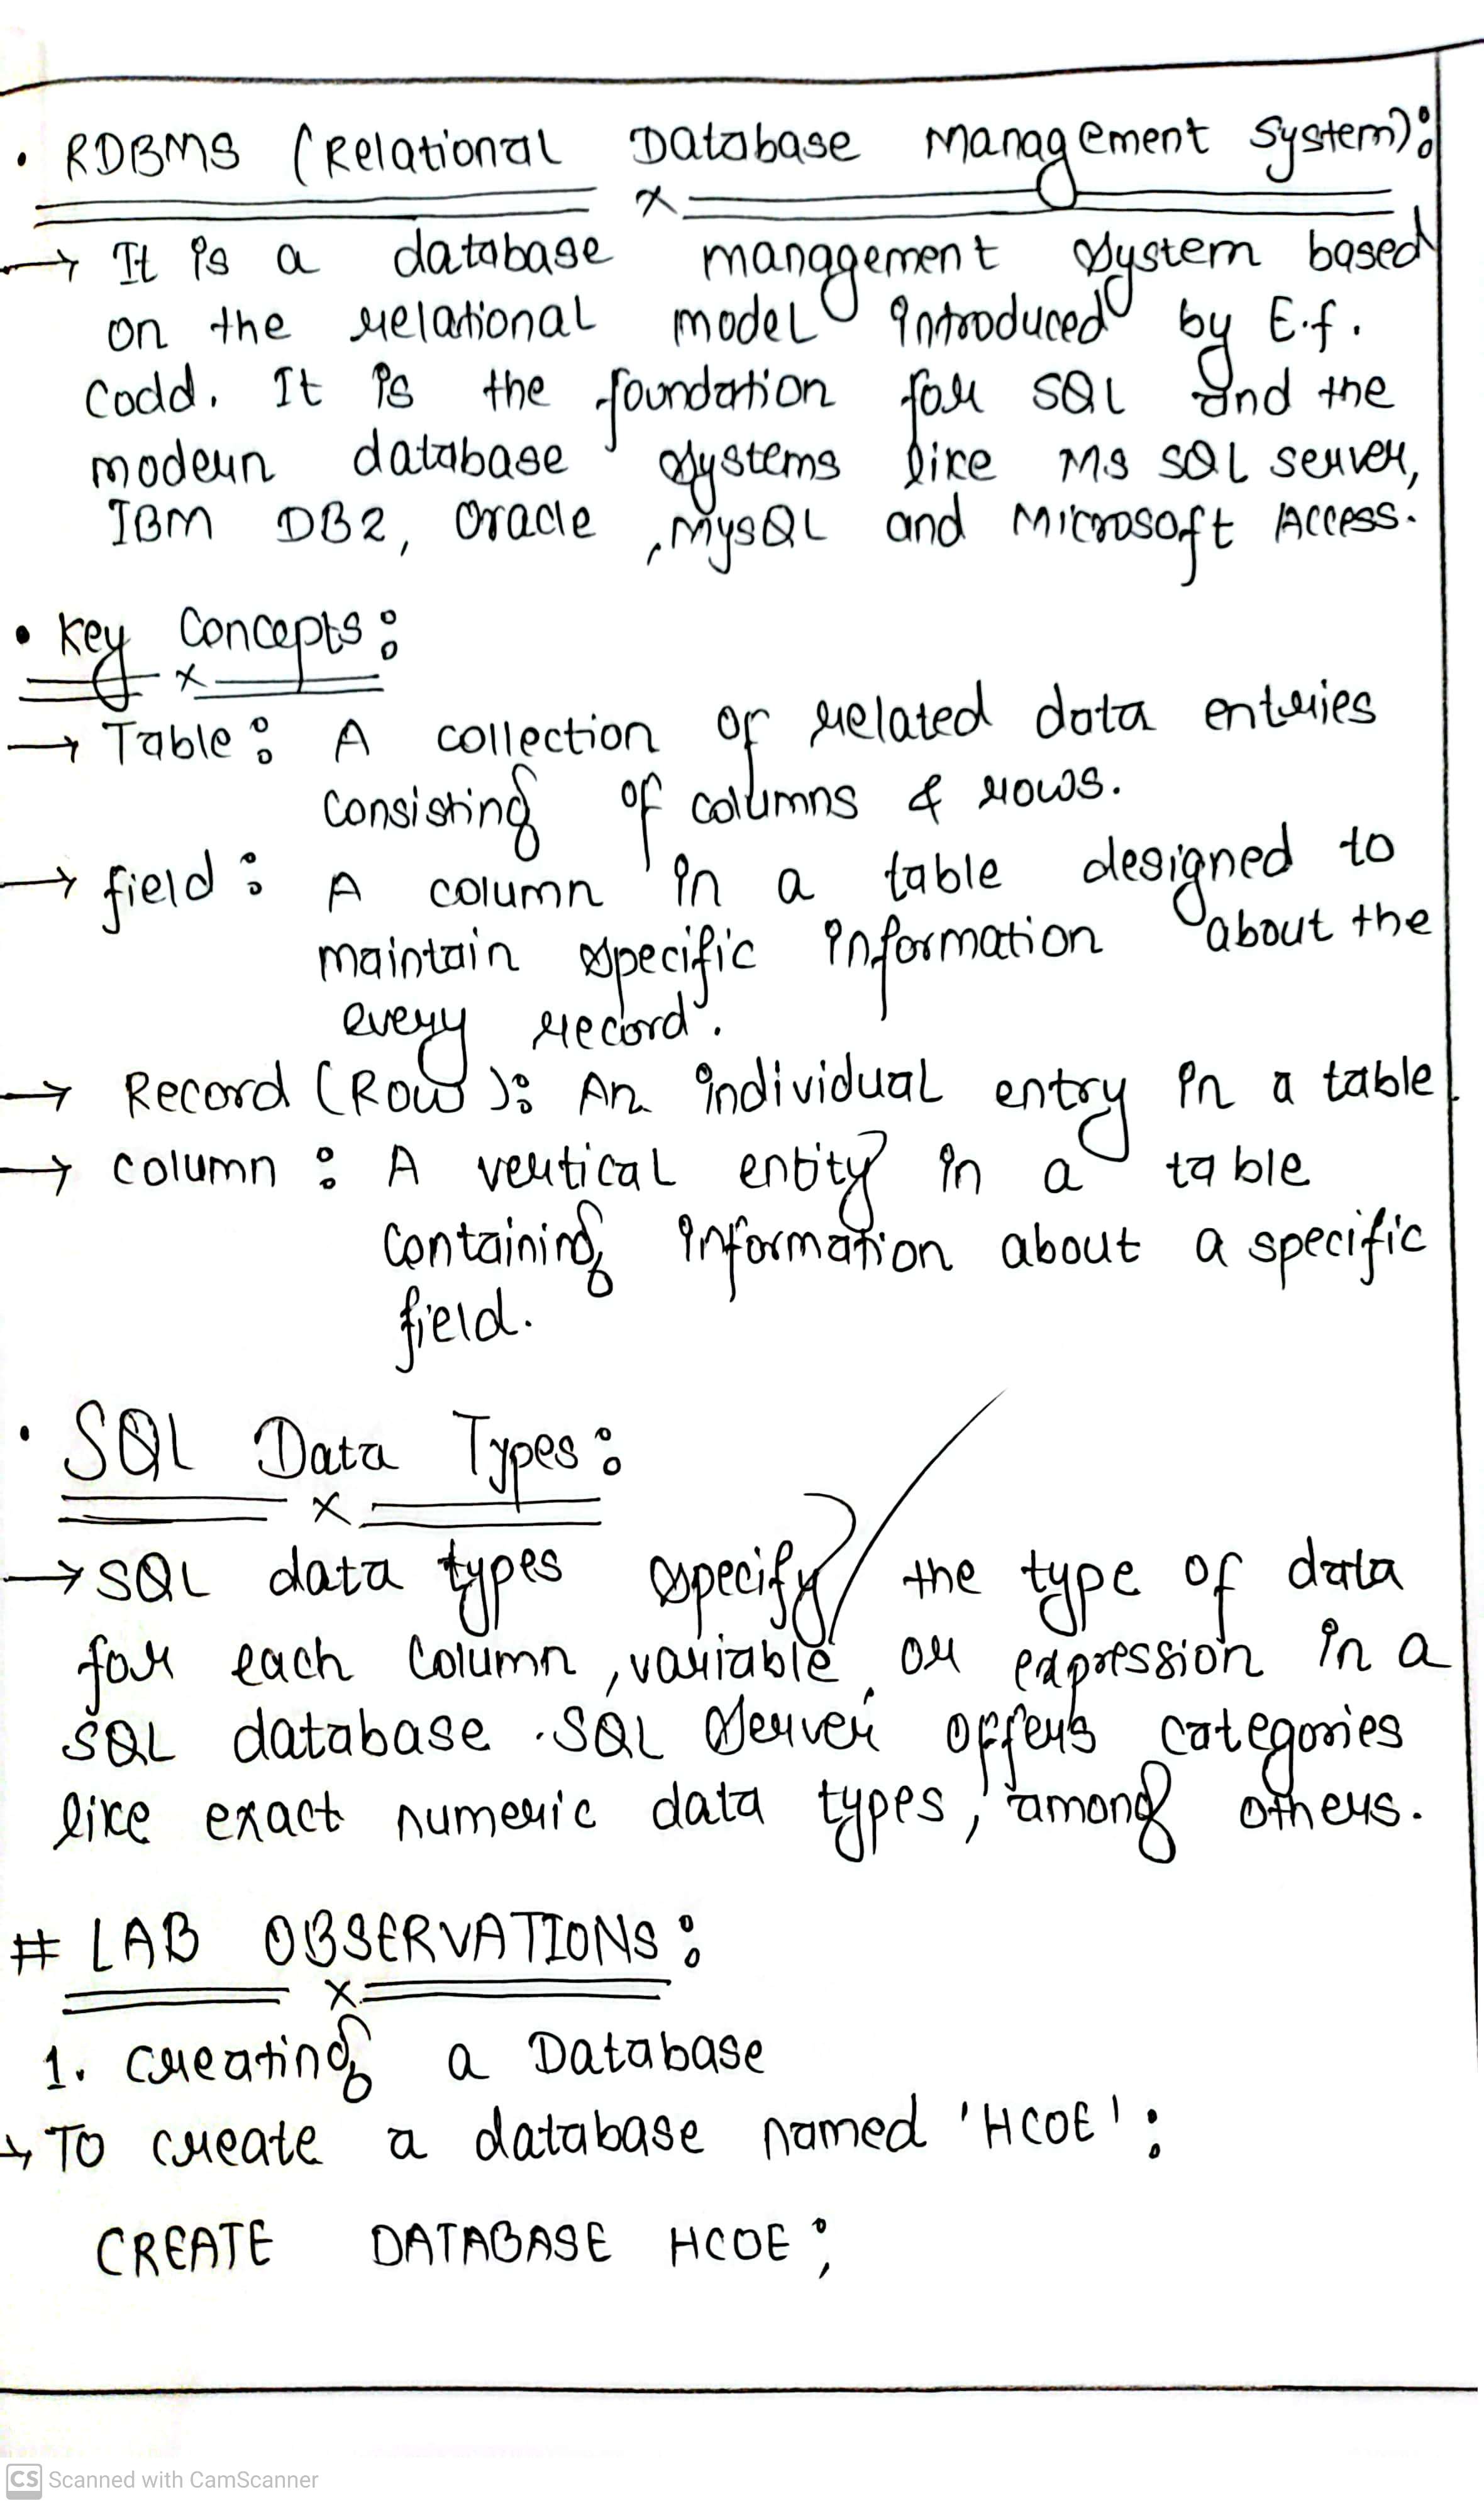 • RDBMS (Relational Database Management System):
→ It is a database management system based
on the relational model introduced by E.f.
Codd. It is the foundation for SQL and the
modern database systems like MS SQL server,
IBM DB2, Oracle, MySQL and Microsoft Access.
• Key Concepts:
→ Table: A collection of related data entries
consisting of columns & rows.
→ field: A column in a table designed to
maintain specific information about the
every record.
→ Record (Row): An individual entry in a table.
→ column: A vertical entity in a table
containing information about a specific
field.
• SQL Data Types:
→ SQL data types specify the type of data
for each column, variable or expression in a
SQL database. SQL Server offers categories
like exact numeric data types, among others.
# LAB OBSERVATIONS:
1. Creating a Database
→ To create a database named 'HCOE':
CREATE DATABASE HCOE;
CS Scanned with CamScanner